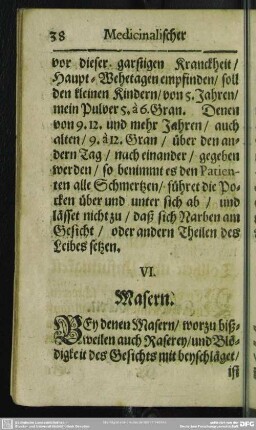 38 Medicinalischer
vor dieser garstigen Kranckheit/
Haupt-Wehetagen empfinden/ soll
den kleinen Kindern/ von 5. Jahren/
mein Pulver 5. à 6. Gran. Denen
von 9. 12. und mehr Jahren/ auch
alten/ 9. à 12. Gran/ über den an-
dern Tag/ nach einander/ gegeben
werden/ so benimmt es den Patien-
ten alle Schmertzen/ führet die Po-
cken über und unter sich ab/ und
lässet nicht zu/ daß sich Narben am
Gesicht/ oder andern Theilen des
Leibes setzen.
VI.
Masern.
BEy denen Masern/ worzu biß-
weilen auch Raserey/ und Blö-
digkeit des Gesichts mit beyschläget/
ist